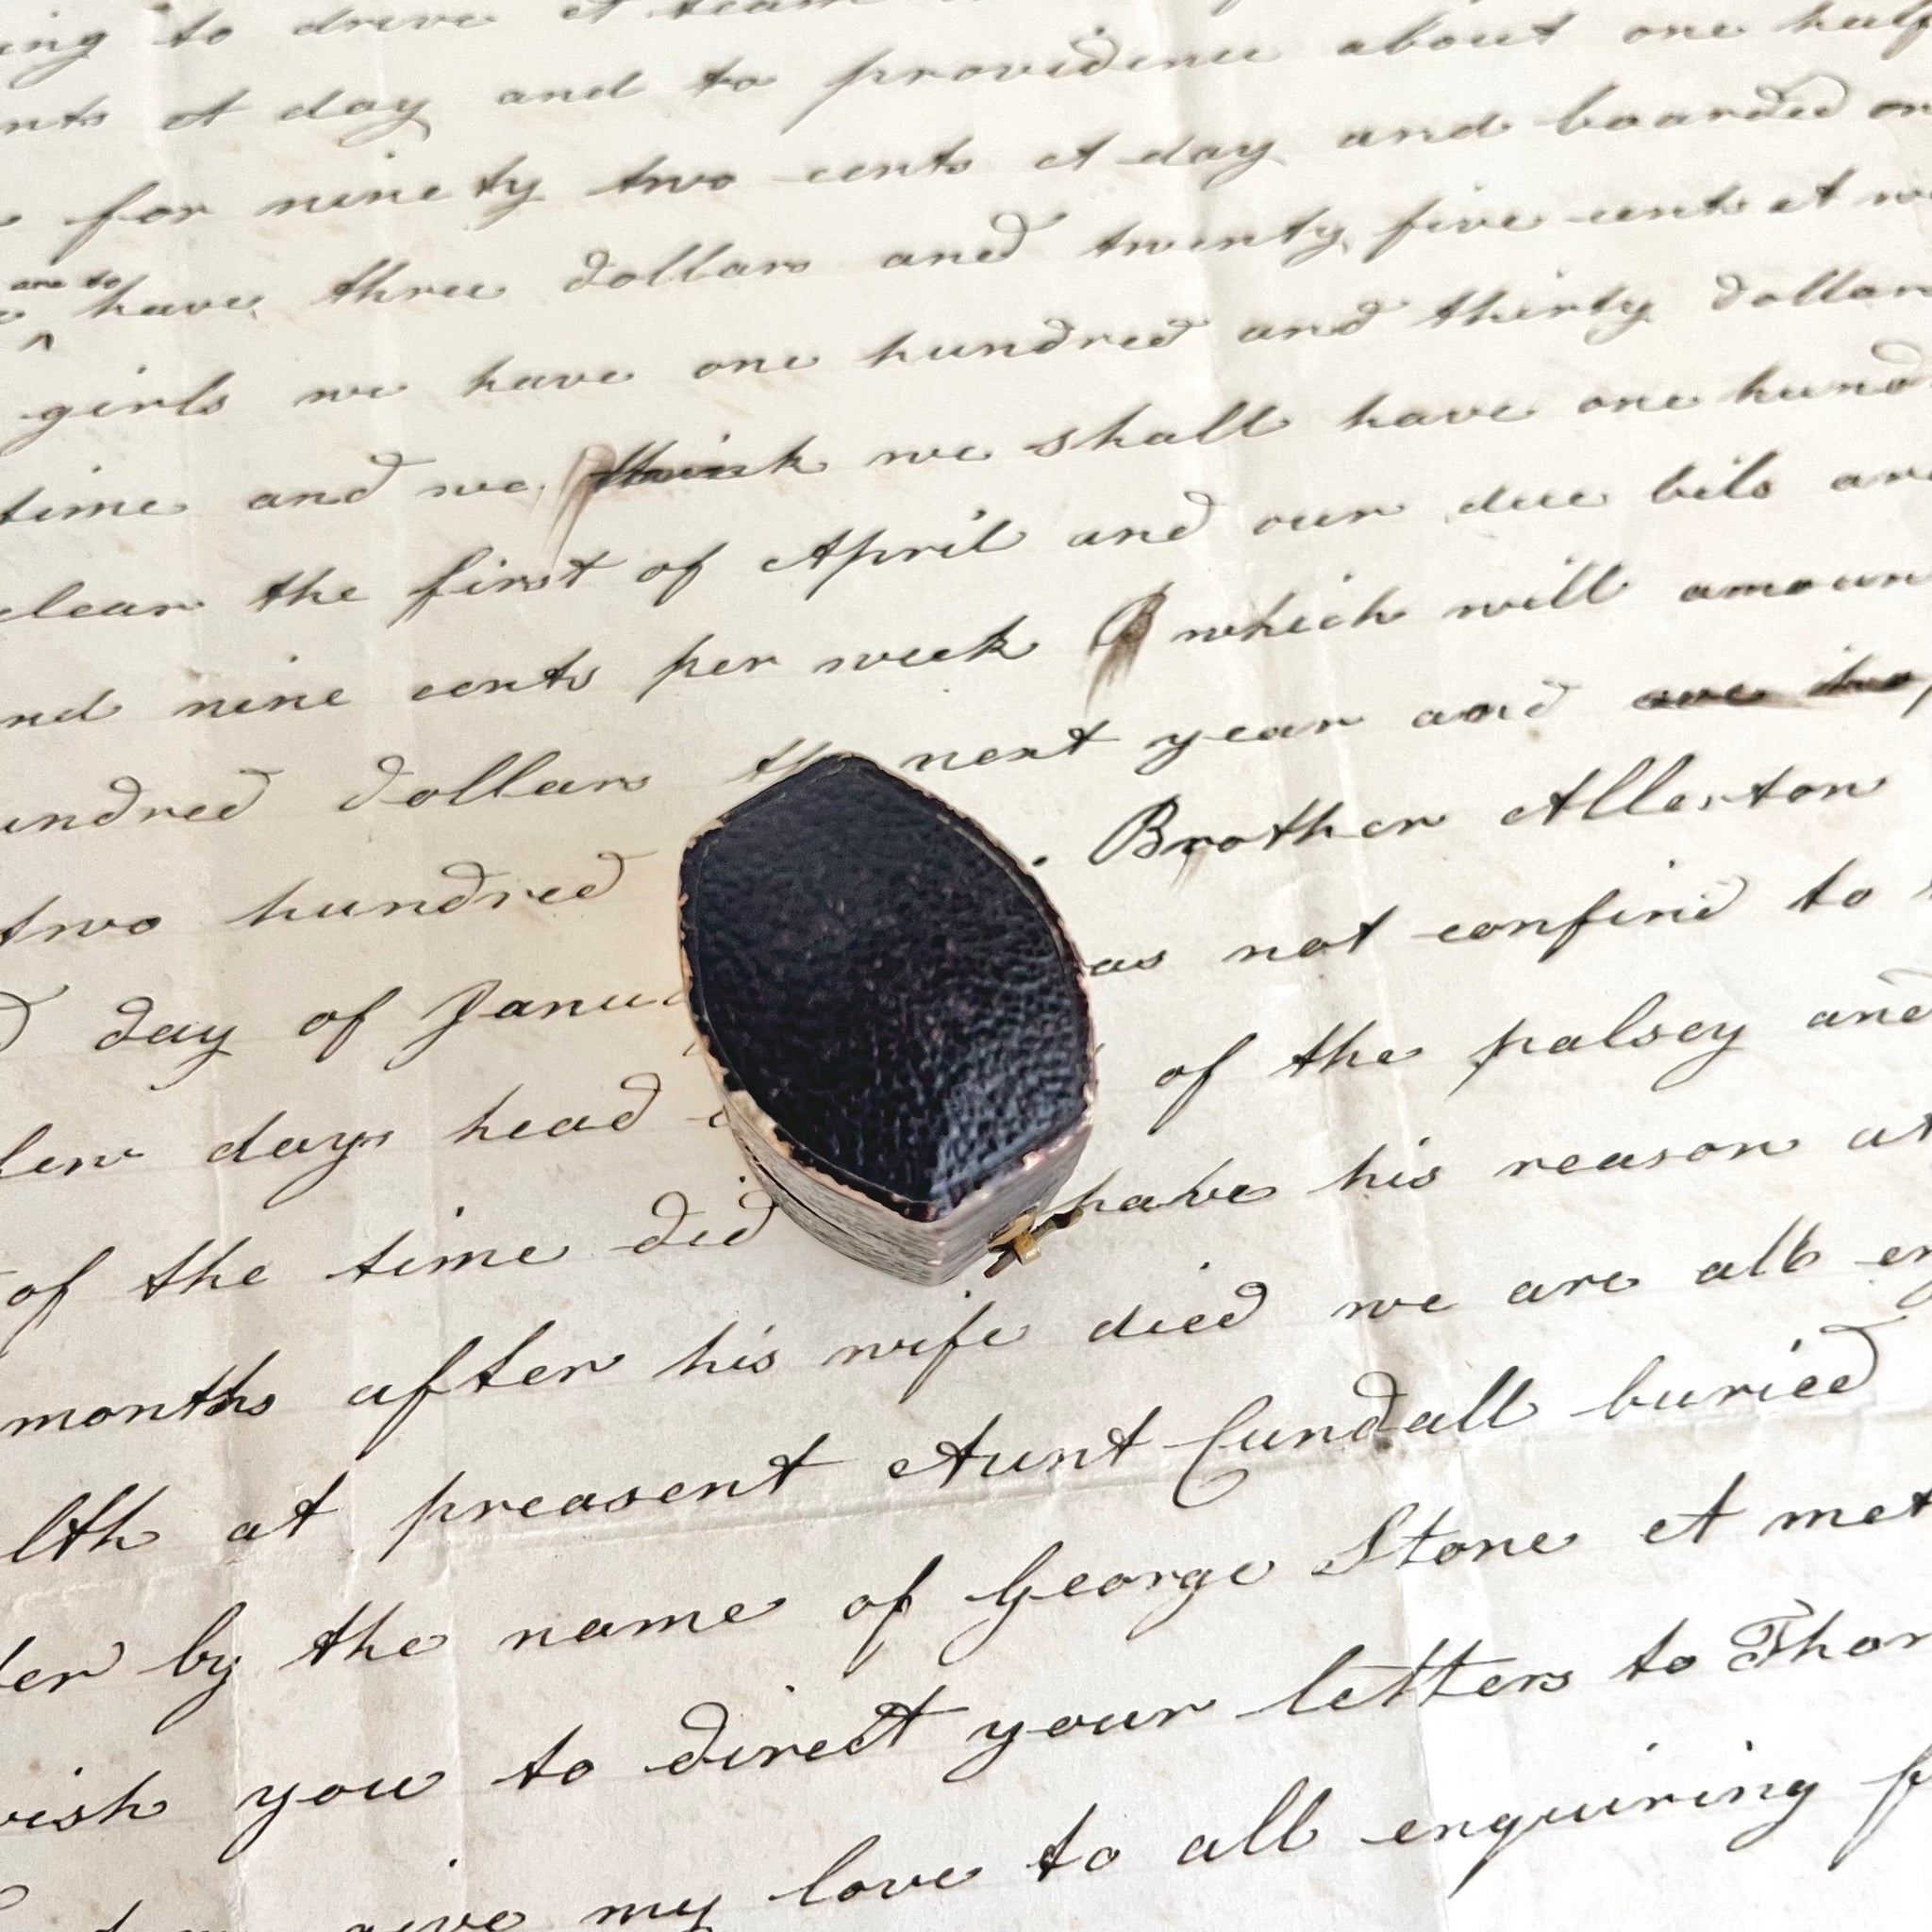 ing to drive A team
nts A day and to providence about one half
for ninety two cents A day and boarded
are to
have three dollars and twenty five cents A
girls we have one hundred and thirty dollars
time and we think we shall have one hund
clear the first of April and our due bils
nd nine cents per week which will amoun
undred dollars next year and
two hundred . Brother Alleston
day of Janu as not confind to
few days head of the palsey and
of the time did have his reason at
months after his wife died we are all
lth at preasent Aunt Cundall buried
der by the name of George Stone A met
wish you to direct your letters to Thor
give my love to all enquiring f